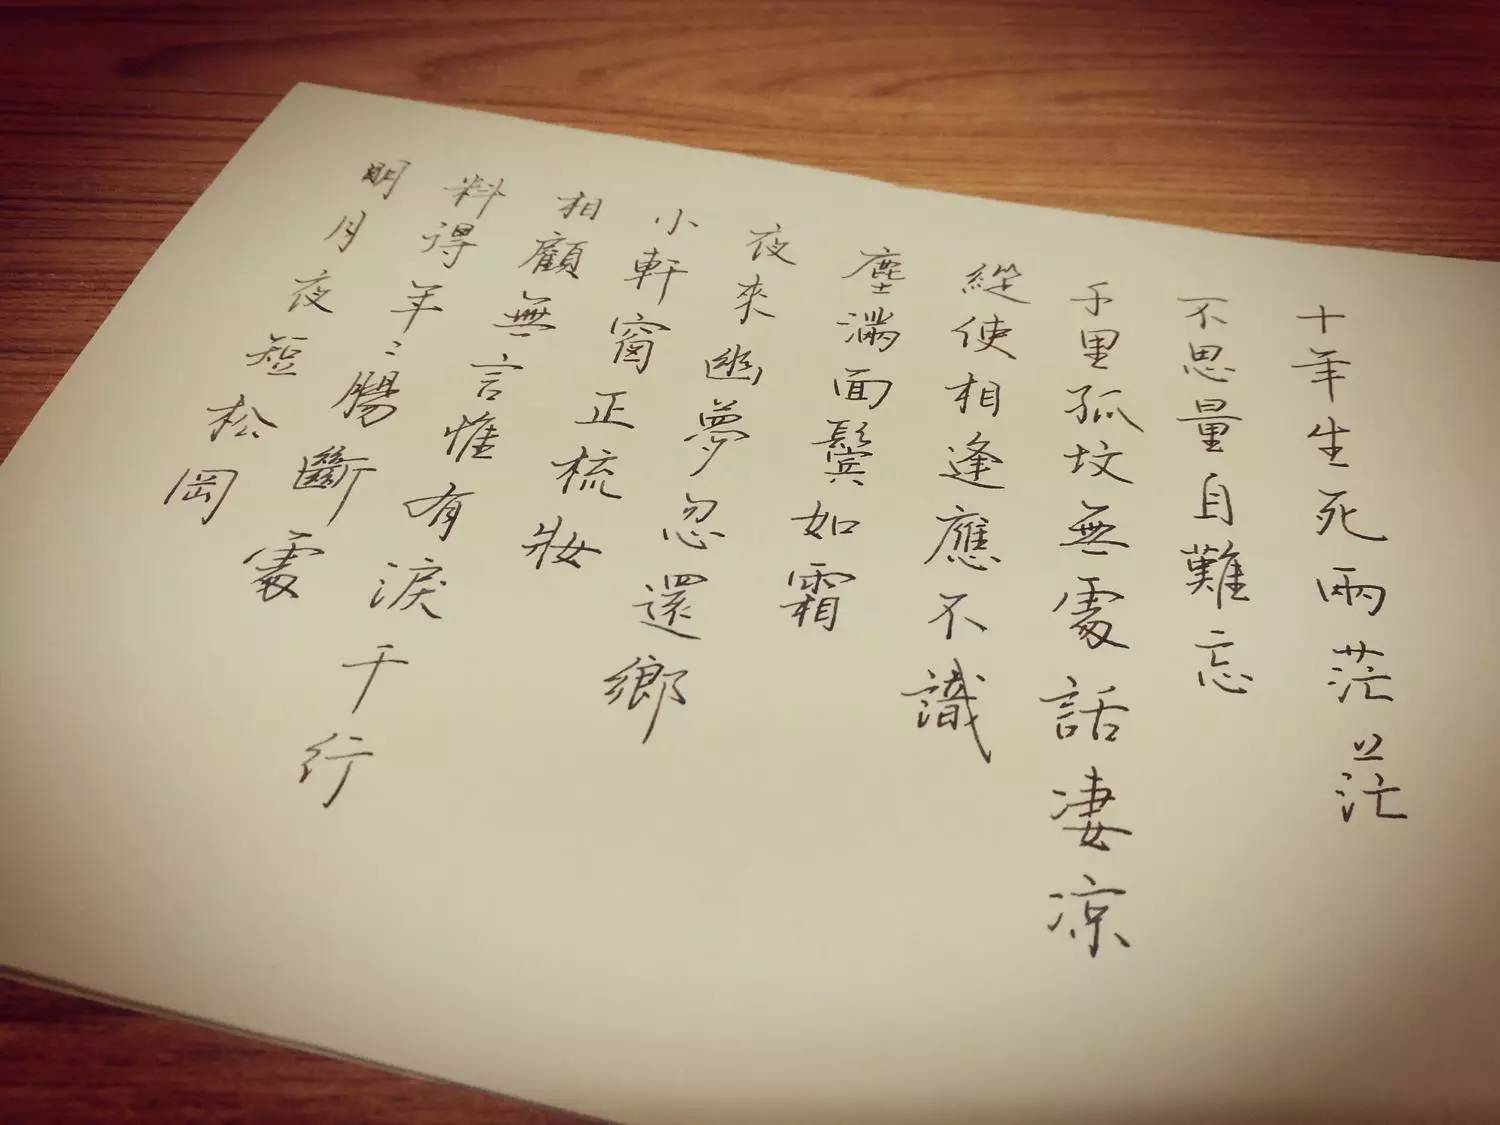 十年生死兩茫茫
不思量自難忘
千里孤墳無處話凄凉
縱使相逢應不識
塵滿面鬢如霜
夜來幽夢忽還鄉
小軒窗正梳妝
相顧無言惟有淚千行
料得年〻腸斷處
明月夜短松岡